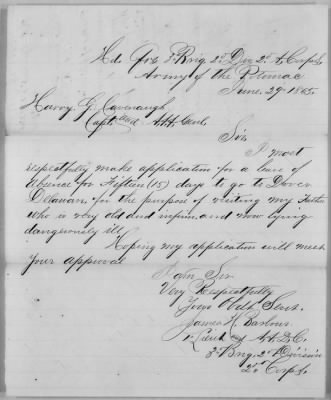 Hd. Qrs 3d Brig. 2d Div 2d A. Corps
Army of the Potomac
June. 29th 1865
Harry G. Cavenaugh
Capt. and A.A.A. Genl.
Sir
I most
respectfully make application for a leave of
absence for Fifteen (15) days to go to Dover
Delaware for the purpose of visiting my Father
who is very old and infirm, and now lying
dangerously ill.
Hoping my application will meet
your approval
I am Sir
Very Respectfully
Your Obdt. Servt.
James H. Barbour
1st Lieut and A.A.D.C.
3d Brig. 2d Division
2d Corps